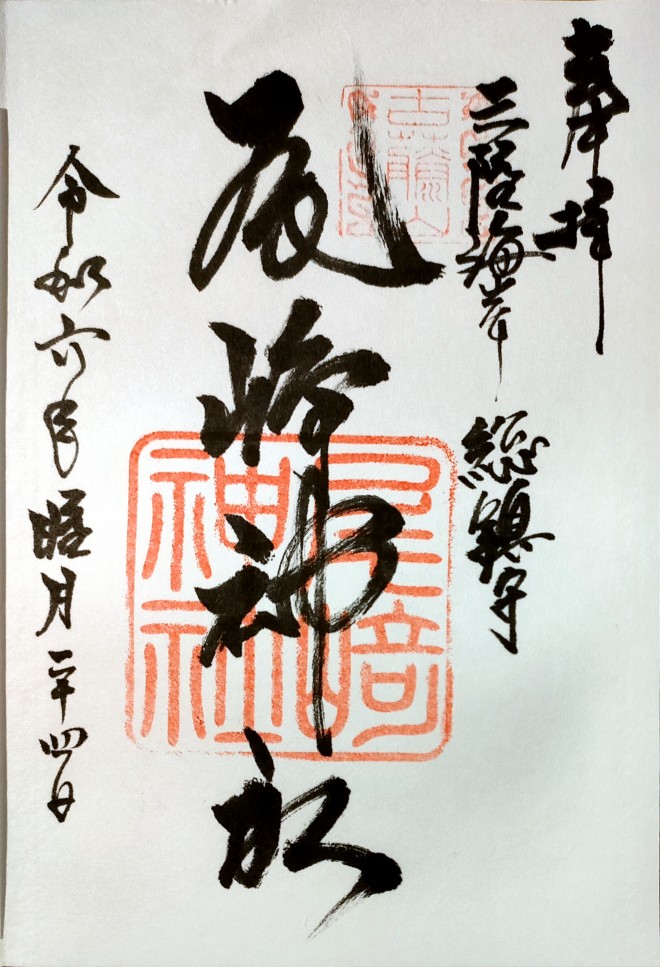 奉拝
三陸海岸 総鎮守
尾崎神社
尾崎神社
令和六年 睦月 二十四日